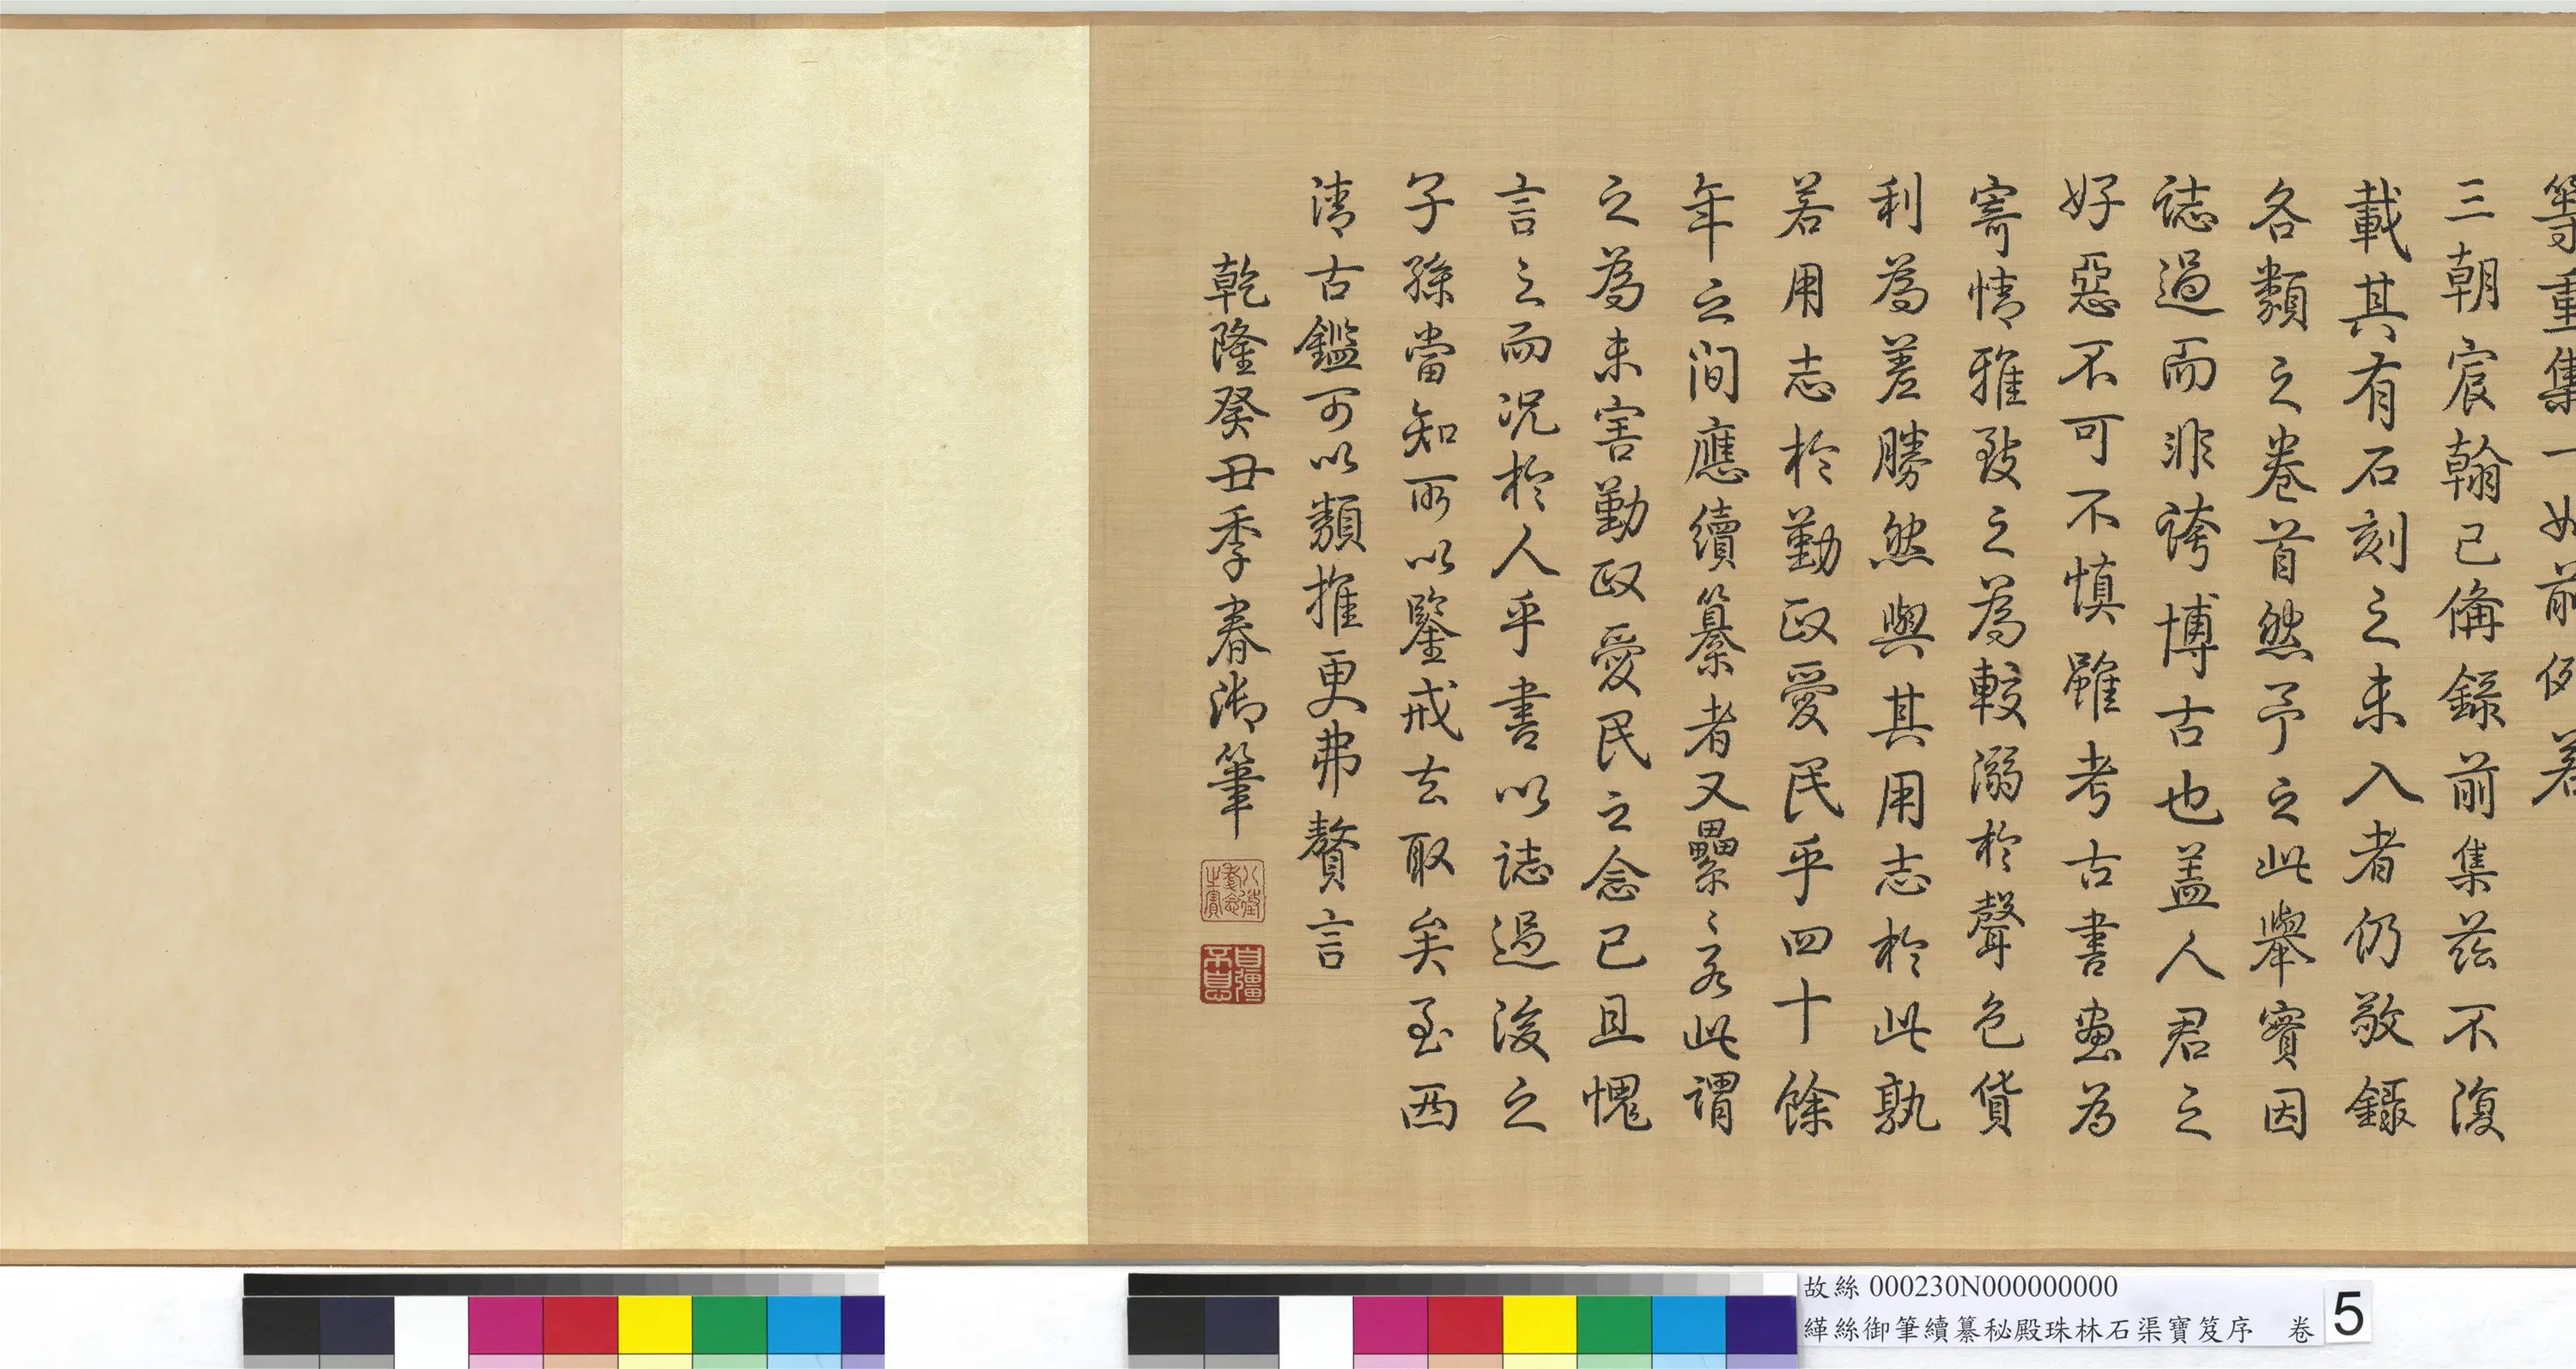 等重集一如前例若
三朝宸翰已備錄前集茲不復
載其有石刻之未入者仍敬錄
各類之卷首然予之此舉實因
誌過而非誇博古也盖人君之
好惡不可不慎雖考古書畫為
寄情雅致之為較溺於聲色貨
利為差勝然與其用志於此孰
若用志於勤政愛民乎四十餘
年之間應續纂者又纍〻若此謂
之為未害勤政愛民之念已且愧
言之而況於人乎書以誌過後之
子孫當知所以鑒戒去取矣至西
清古鑑可以類推更弗贅言
乾隆癸丑季春御筆
八徵耄念之寶
自彊不息
故絲 000230N000000000
緙絲御筆續纂秘殿珠林石渠寶笈序 卷
5